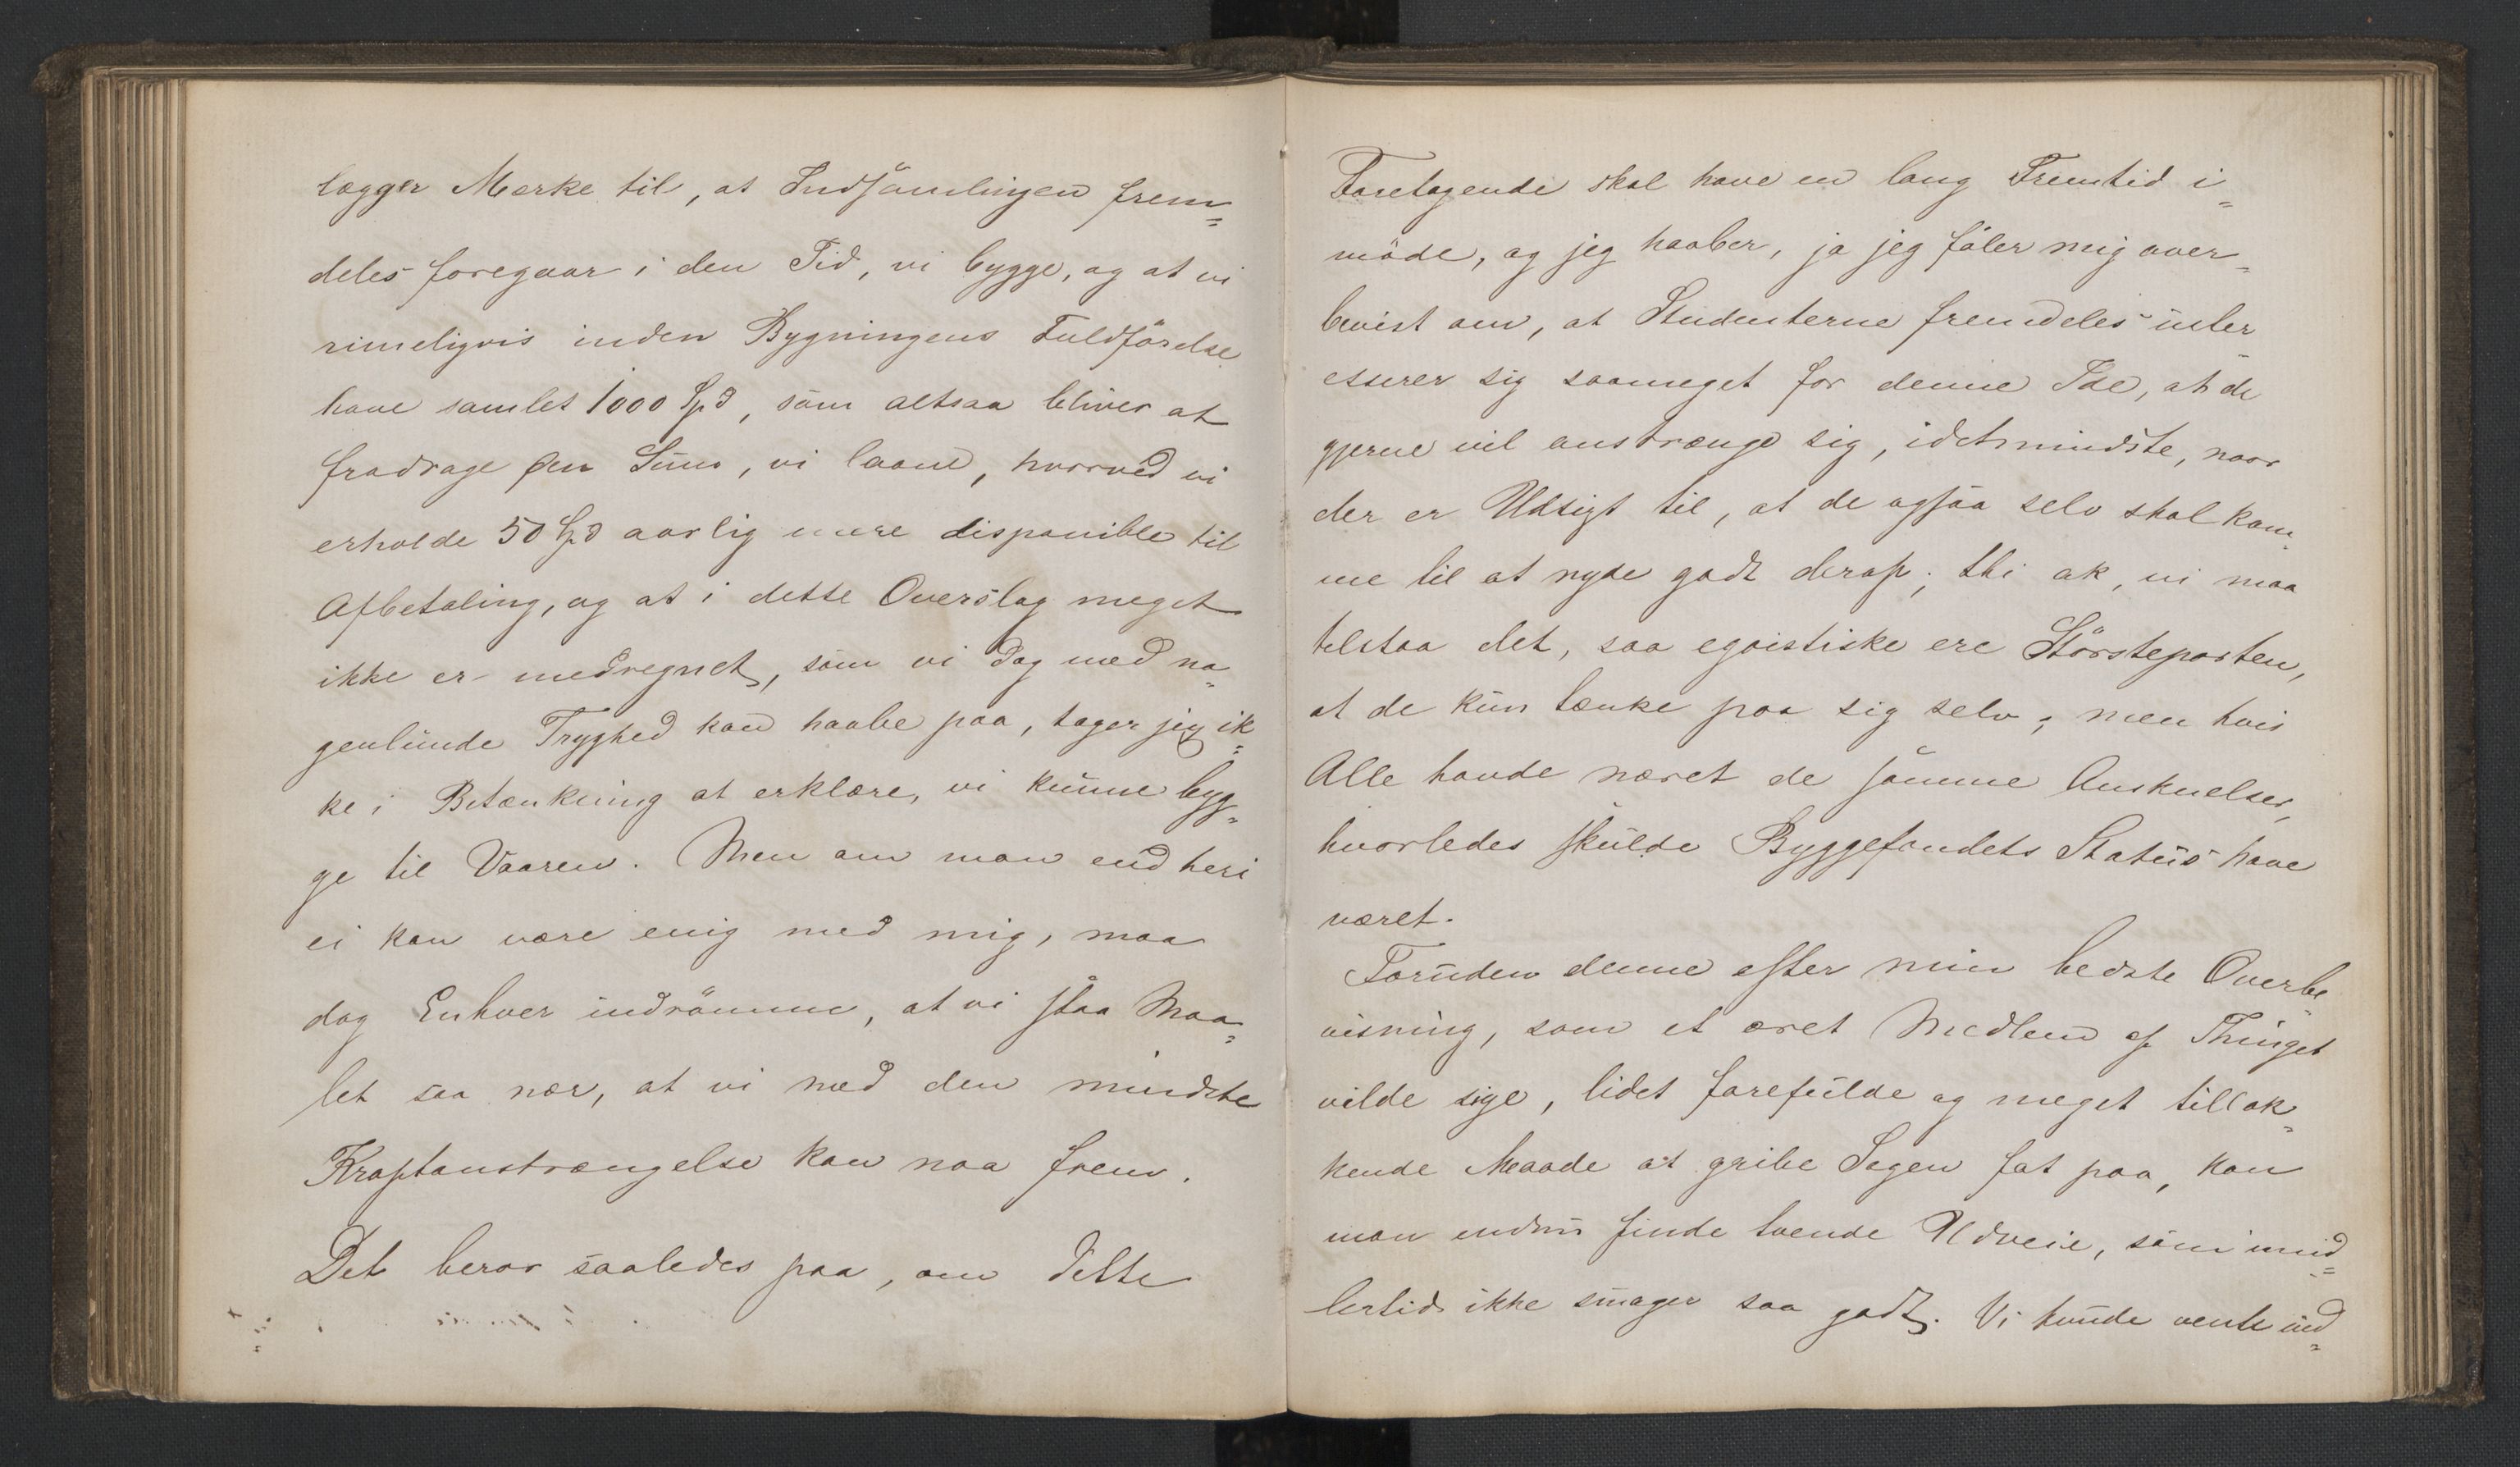 lægger Mærke til, at Indsamlingen frem=
deles foregaar i den Tid, vi bygge, og at vi
rimeligvis inden Bygningens Fuldförelse
have samlet 1000 Spd, som altsaa bliver at
fradrage den Sum, vi laane, hvorved vi
erholde 50 Spd aarlig mere disponible til
Afbetaling, og at i dette Overslag meget
ikke er medregnet, som vi dog med no=
genlunde Tryghed kan haabe paa, tager jeg ik=
ke i Betænkning at erklære, vi kunne byg=
ge til Vaaren. Men om man end heri
ei kan være enig med mig, maa
dog Enhver indrömme, at vi staa Maa=
let saa nær, at vi med den mindste
Kraftanstrængelse kan naa frem.
Det beror saaledes paa, om dette
Foretagende skal have en lang Fremtid i=
möde, og jeg haaber, ja jeg föler mig over=
bevist om, at Studenterne fremdeles inter=
esserer sig saameget for denne Ide, at de
gjerne vil anstrænge sig, idetmindste, naar
der er Udsigt til, at de ogsaa selv skal kom=
me til at nyde godt deraf; thi ak, vi maa
tilstaa det, saa egoistiske ere Störsteparten,
at de kun tænke paa sig selv; men hvis
Alle havde næret de samme Anskuelser,
hvorledes skulde Byggefondets Status have
været.
Foruden denne efter min bedste Overbe=
visning, som et æret Medlem af Thinget
vilde sige, lidet farefulde og meget tillok=
kende Maade at gribe Sagen fat paa, kan
man endnu finde tvende Udveie, som imid=
lertid ikke smager saa godt. Vi kunde vente ind=